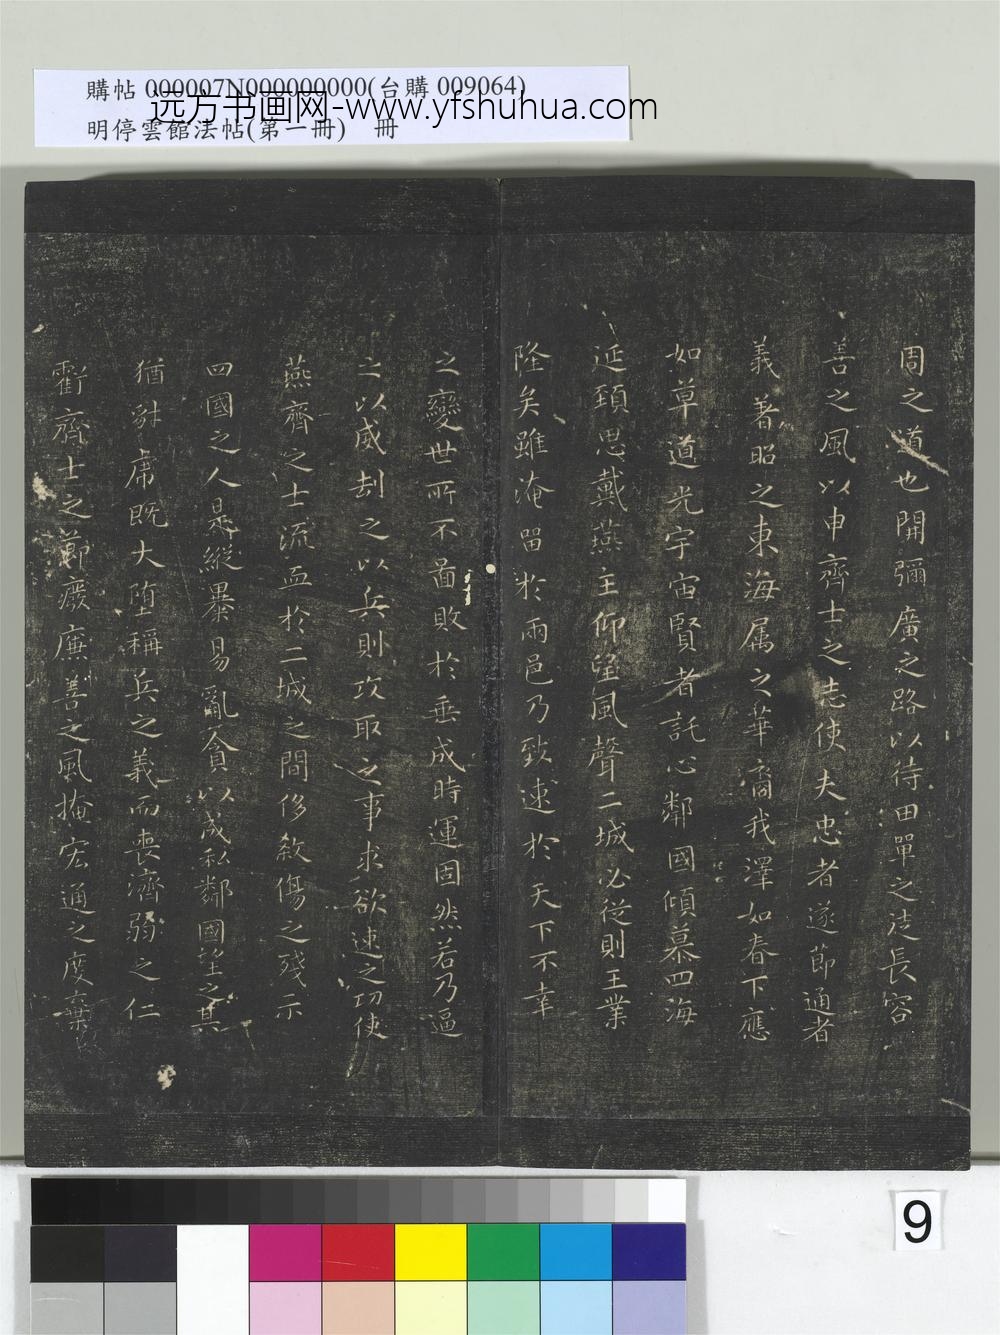 購帖 000007N000000000(台購 009064)
远方书画网-www.yfshuhua.com
明停雲館法帖(第一冊) 冊
周之道也開彌廣之路以待田單之法長容
善之風以申齊士之志使夫忠者遂節通者
義著昭之東海属之華裔我澤如春下應
如草道光宇宙賢者託心鄰國傾慕四海
延頸思戴燕主仰望風聲二城必従則王業
隆矣雖淹留於兩邑乃致速於天下不幸
之變世所不啚敗於垂成時運固然若乃逼
之以威劫之以兵則攻取之事求欲速之功使
燕齊之士流血於二城之間侈敘傷之殘示
四國之人是縱暴易亂貪以成私鄰國望之其
猶豺虎既大堕稱兵之義而喪濟弱之仁
虧齊士之節癈廉善之風掩宏通之度棄
9